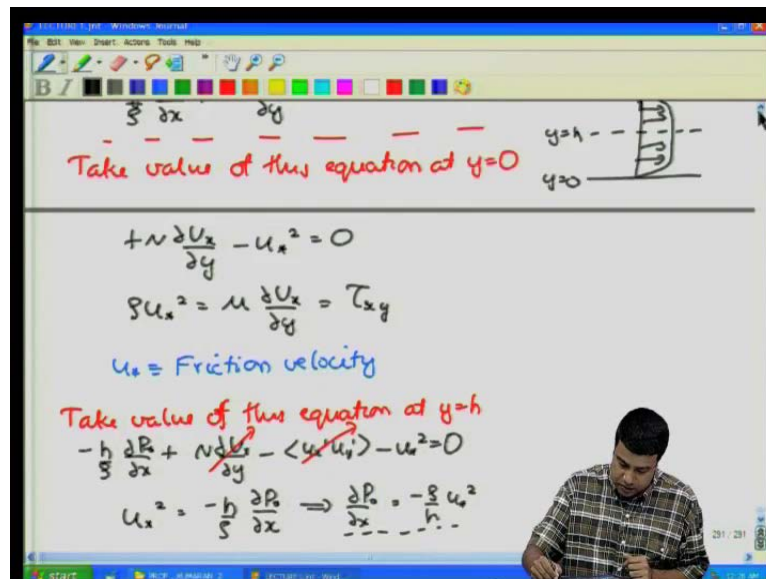 LECTURE 1.jnt - Windows Journal
File Edit View Insert Actions Tools Help
B I
ρ ∂x ∂y
Take value of this equation at y=0
y=h
y=0
+ν ∂Uₓ/∂y - u*² = 0
ρu*² = μ ∂Uₓ/∂y = τxy
u* ≡ Friction velocity
Take value of this equation at y=h
-h/ρ ∂P₀/∂x + ν ∂Uₓ/∂y - <uₓ'uy'> - u*² = 0
u*² = -h/ρ ∂P₀/∂x ⇒ ∂P₀/∂x = -ρ/h u*²
291 / 291
start